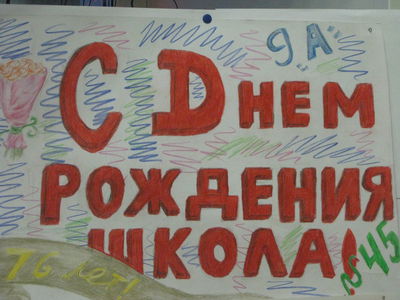 9 "А"
С Днем
РОЖДЕНИЯ
ШКОЛА!
№45
76 лет!